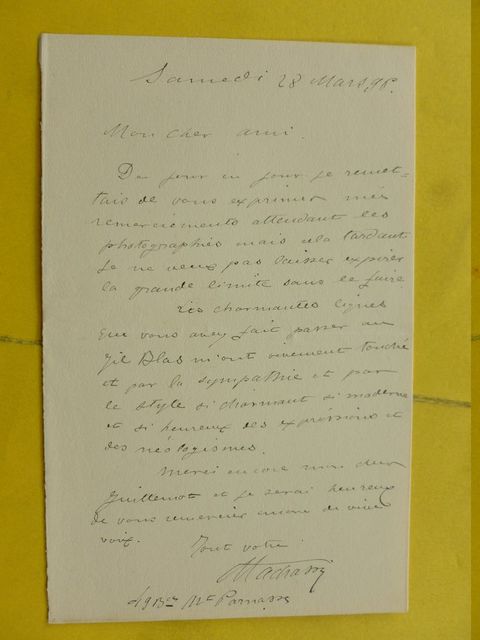 Samedi 28 Mars 96.
Mon cher ami.
De jour en jour je remet-
tais de vous exprimer mes
remerciements attendant les
photographies mais cela tardant
je ne veux pas laisser expirer
la grande limite sans le faire
Les charmantes lignes
que vous avez fait passer au
Gil Blas m'ont vivement touché
et par la sympathie et par
le style si charmant si moderne
et si heureux des expressions et
des néologismes.
Merci encore mon cher
Guillemot et je serai heureux
de vous remercier encore de vive
voix.
Tout votre
Mt Parnasse